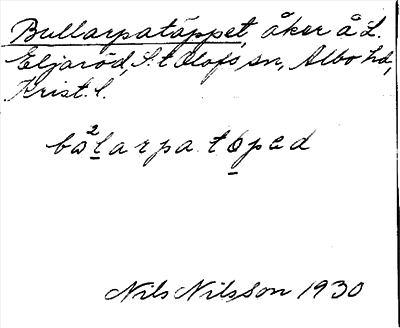 Bullarpatäppet, åker å L.
Eljaröd, S:t Olofs sn, Albo hd,
Krist. l.
Nils Nilsson 1930